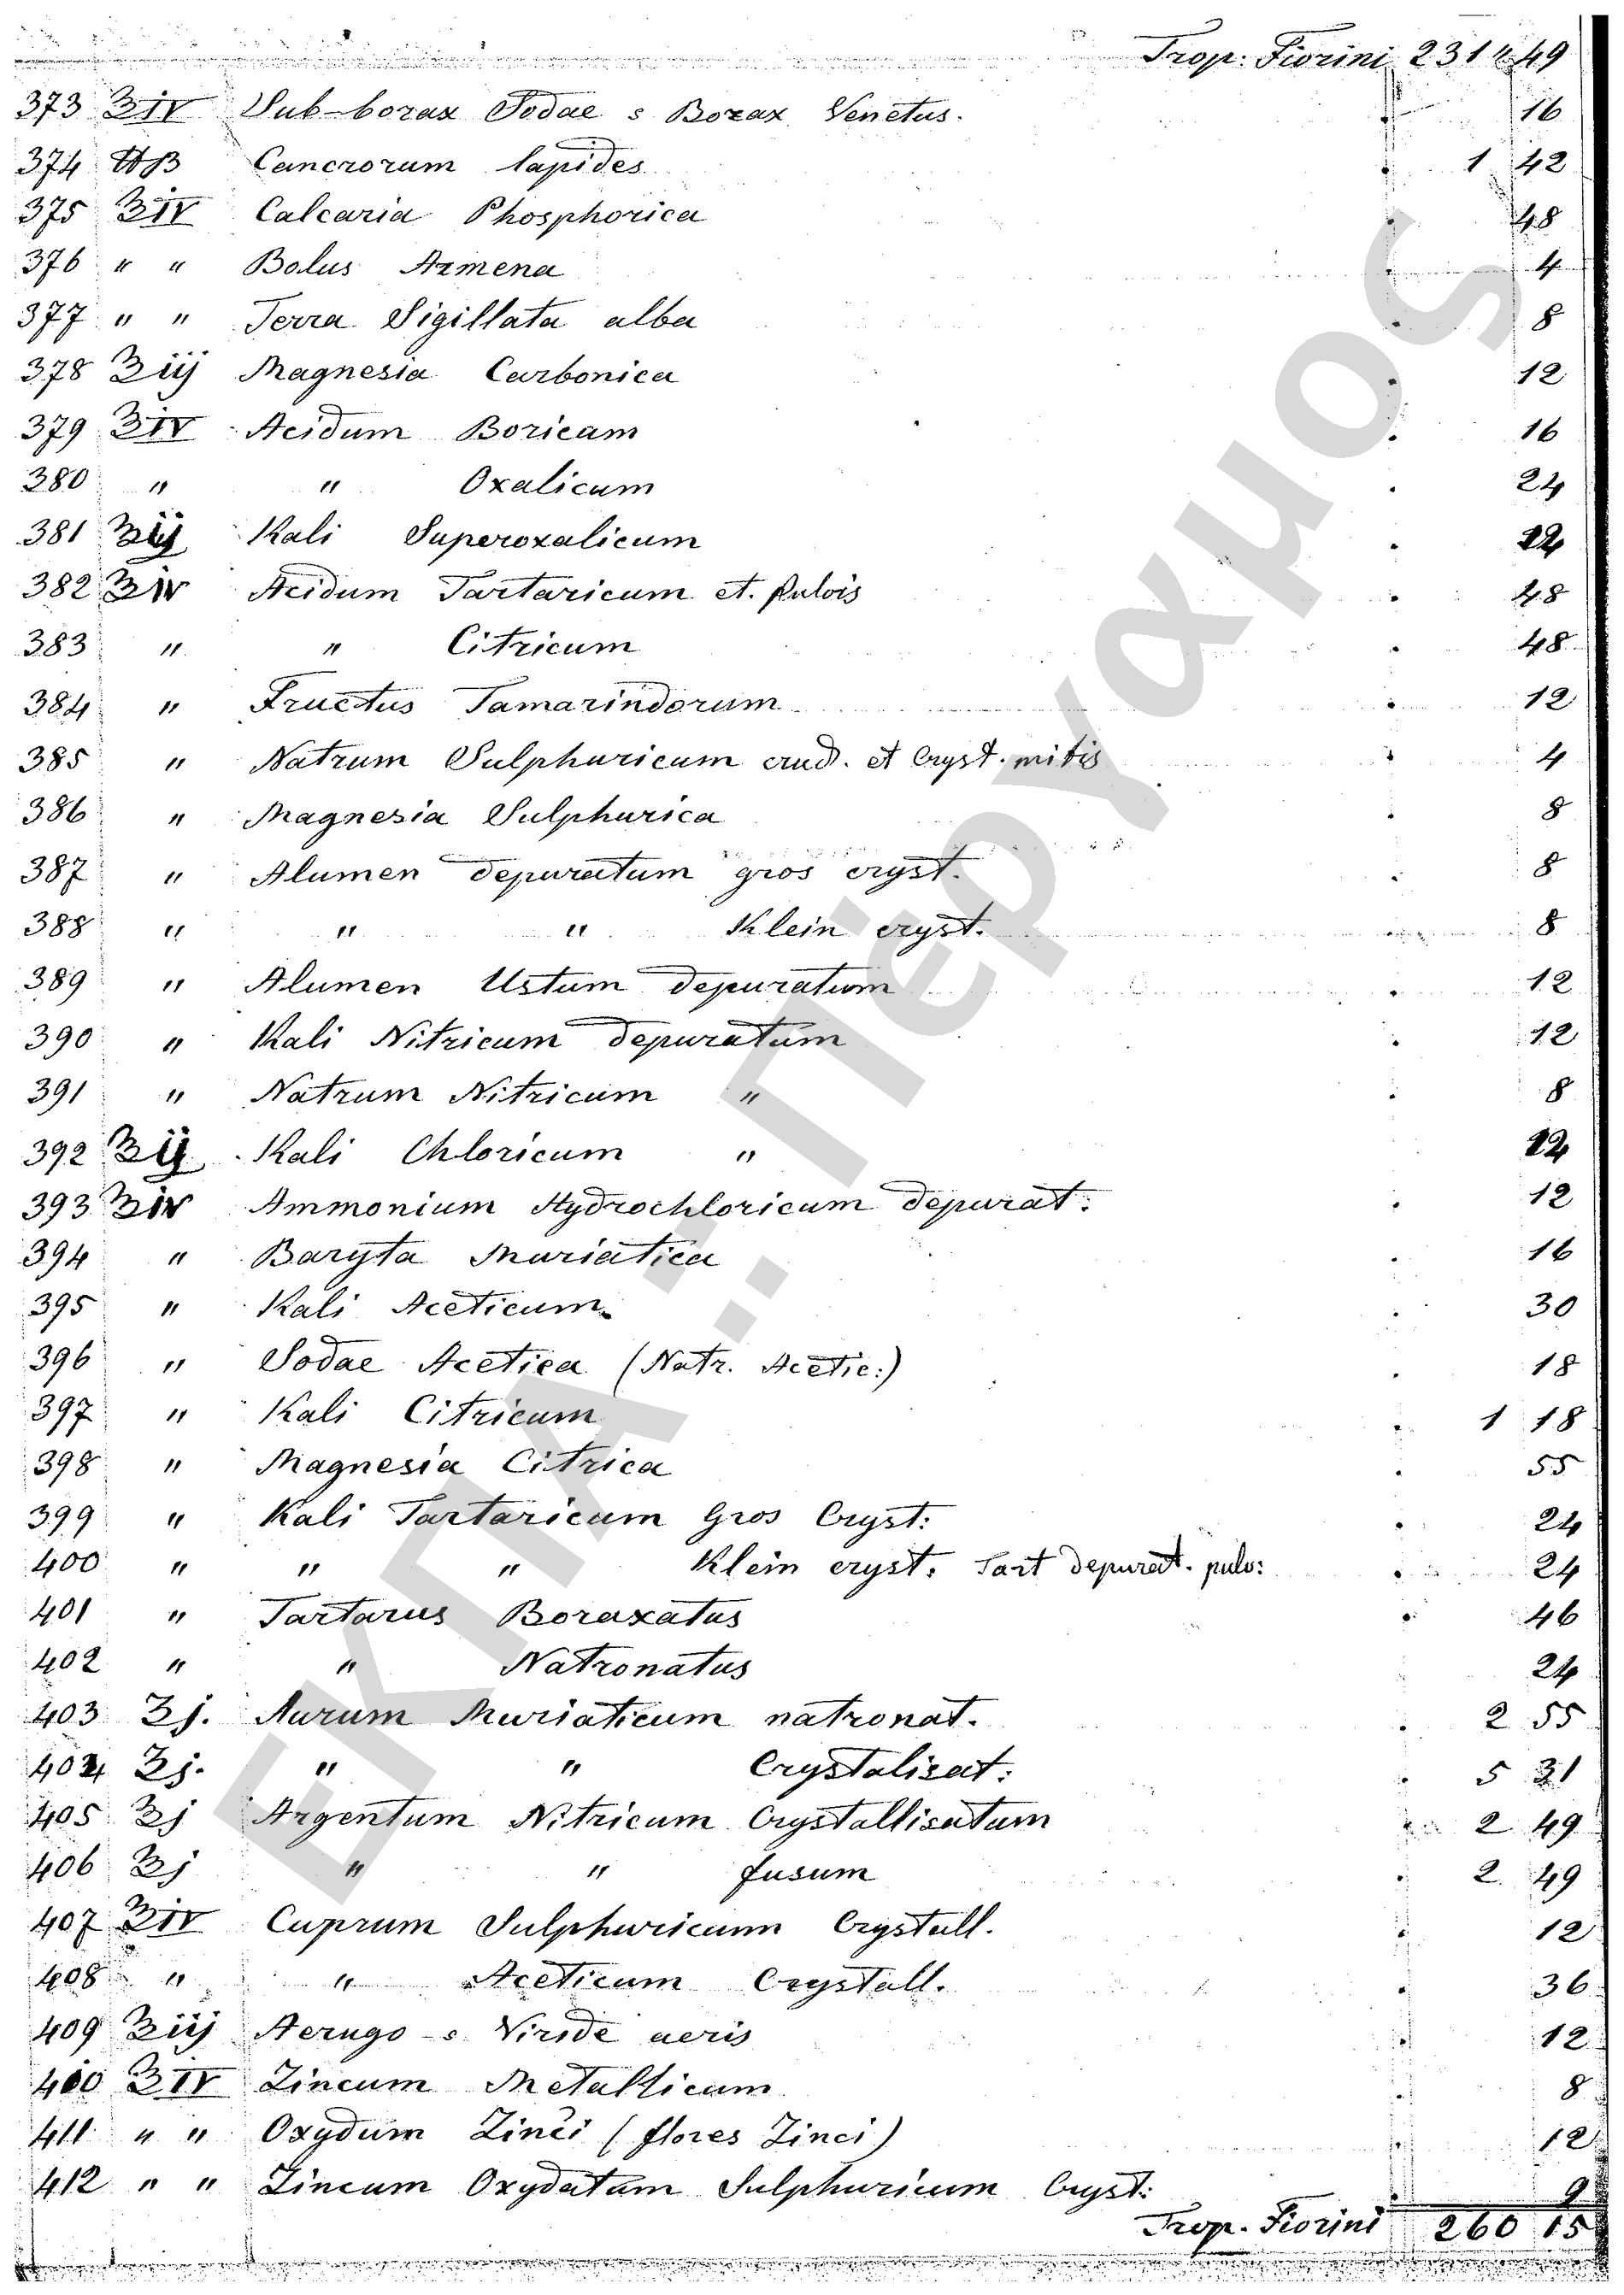 Trop. Fiorini 231 49
373 ℥IV Sub-borax Sodae s Borax Venetus. 16
374 ℔β Cancrorum lapides 1 42
375 ℥IV Calcaria Phosphorica 48
376 " " Bolus Armena 4
377 " " Terra Sigillata alba 8
378 ℥iij Magnesia Carbonica 12
379 ℥IV Acidum Boricam 16
380 " " Oxalicum 24
381 Kali Superoxalicum
382 ℥iv Acidum Tartaricum et. Pulvis 48
383 " " Citricum 48
384 " Fructus Tamarindorum 12
385 " Natrum Sulphuricum crud. et Cryst. mitis 4
386 " Magnesia Sulphurica 8
387 " Alumen depuratum gros cryst. 8
388 " " " Klein cryst. 8
389 " Alumen Ustum depuratum 12
390 " Kali Nitricum depuratum 12
391 " Natrum Nitricum " 8
392 ℥ij Kali Chloricum "
393 ℥iv Ammonium Hydrochloricum depurat: 12
394 " Baryta Muriatica 16
395 " Kali Aceticum 30
396 " Sodae Acetica (Natr. Acetic:) 18
397 " Kali Citricum 1 18
398 " Magnesia Citrica 55
399 " Kali Tartaricum Gros Cryst: 24
400 " " " Klein cryst. Tart depurat. pulv: 24
401 " Tartarus Boraxatus 46
402 " " Natronatus 24
403 ʒj. Aurum Muriaticum natronat. 2 55
404 ʒj. " " Crystalisat: 5 31
405 ʒj Argentum Nitricum Crystallisatum 2 49
406 ʒj " " fusum 2 49
407 ℥IV Cuprum Sulphuricum Crystall. 12
408 " " Aceticum Crystall. 36
409 ℥iij Aerugo s Viride aeris 12
410 ℥IV Zincum Metallicum 8
411 " " Oxydum Zinci (flores Zinci) 12
412 " " Zincum Oxydatum Sulphuricum Cryst: 9
Trop. Fiorini 260 15
ΕΚΠΑ.: Πέργαμος